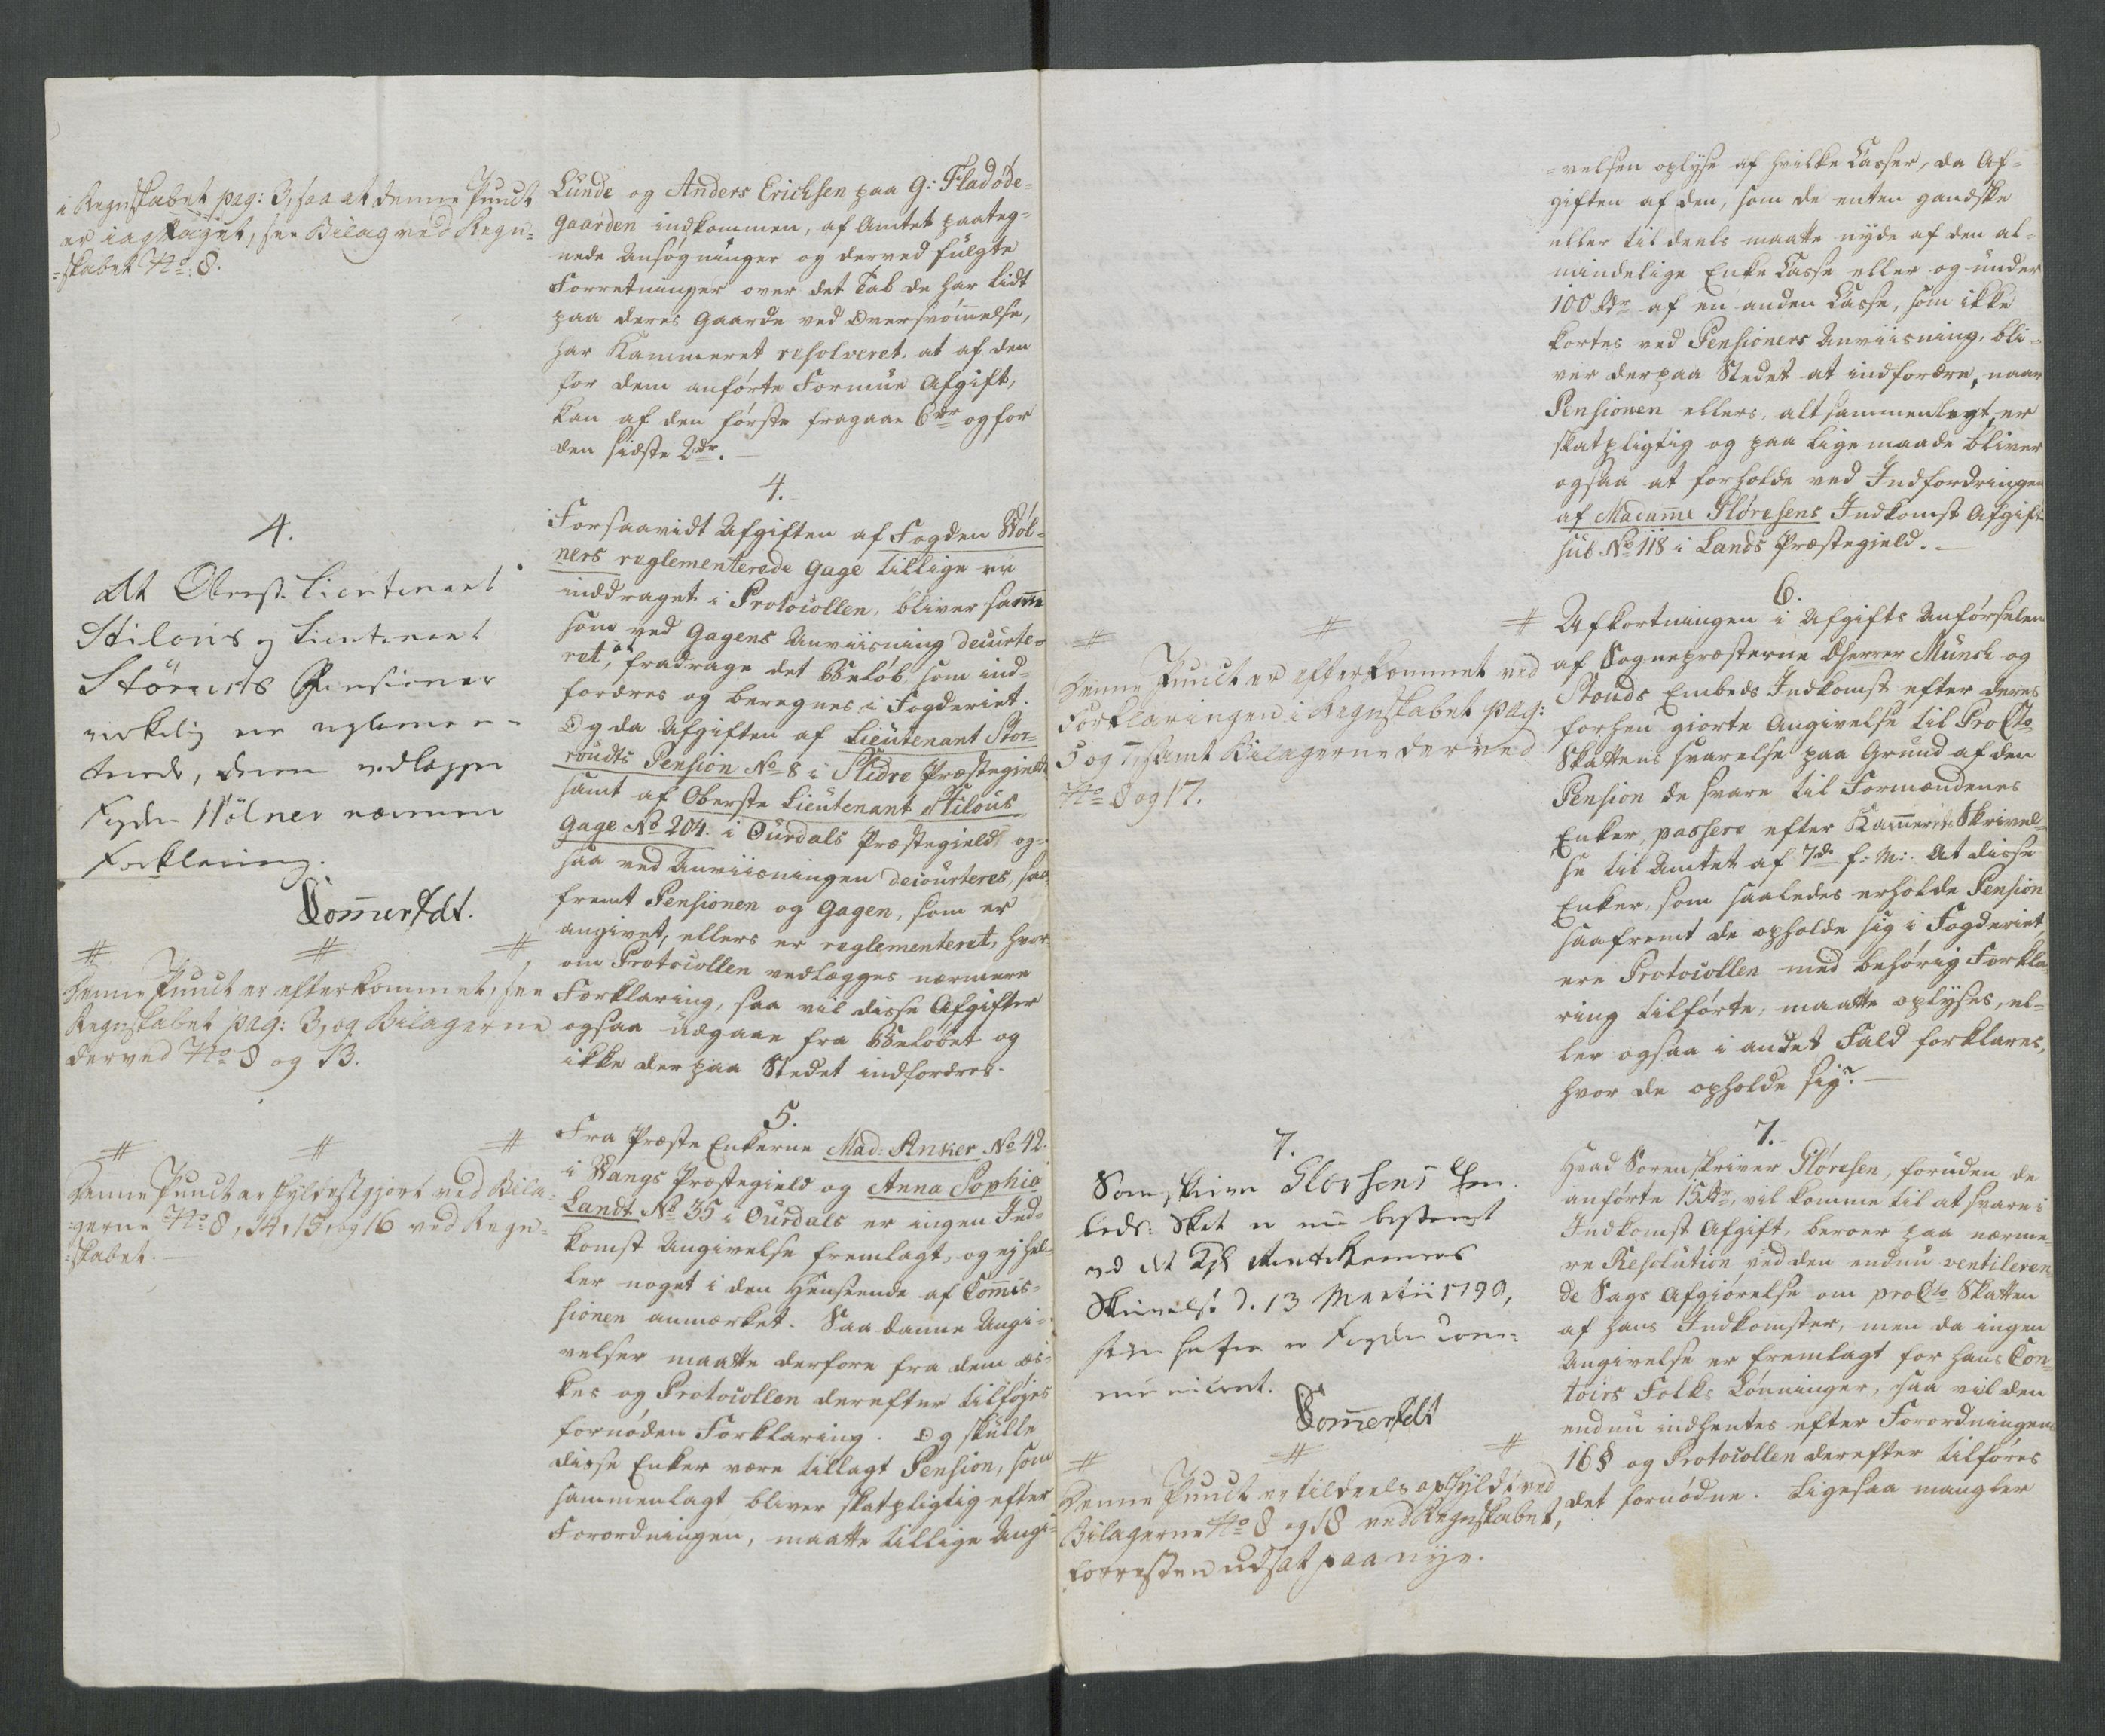 i Regnskabet pag: 3, saa at denne Punct
er iagttaget, see Bilag ved Regn-
=skabet No. 8.
4.
At Oberst Lieutenant
Stilous og Lieutenant
Pensioner
virkelig ere reglemen-
terede, derom vedlægger
Fogden Wölner nærmere
Forklaring.
Sommerfeldt.
Denne Punct er efterkommet, see
Regnskabet pag: 3, og Bilagerne
derved No 8 og 13.
Denne Punct er fyldestgjort ved Bila-
gerne No 8, 14, 15, og 16 ved Regn-
=skabet.
Lunde og Anders Erichsen paa G: Fladøde-
gaarden indkommen, af Amtet paateg-
nede Ansøgninger og derved fulgte
Forretninger over det Tab de har lidt
paa deres Gaarde ved Oversvømmelse,
har Kammeret resolveret, at af den
for dem anførte Formue Afgift,
kan af den første fragaae 6 rdr og for
den sidste 2 rdr. —
4.
Forsaavidt Afgiften af Fogden Wöl-
ners reglementerede Gage tillige er
inddraget i Protocollen, bliver samme
som ved Gagens Anviisning decurte-
ret, at fradrage det Beløb, som ind-
fordres og beregnes i Fogderiet.
Og da Afgiften af Lieutenant Stor-
roudts Pension No 8 i Slidre Præstegield
samt af Oberste Lieutenant Stilous
Gage No 204. i Ourdals Præstegield og-
saa ved Anviisningen decourteres, saa-
fremt Pensionen og Gagen, som er
angivet, ellers er reglementeret, hvor-
om Protocollen vedlægges nærmere
Forklaring, saa vil disse Afgifter
ogsaa udgaae fra Beløbet og
ikke der paa Stedet indfordres.
5.
Fra Præste Enkerne Mad: Anker No 42.
i Vangs Præstegield og Anna Sophia
Landt No 35 i Ourdals er ingen Ind-
komst Angivelse fremlagt, og ej hel-
ler noget i den Henseende af Commis-
sionen anmærket. Saadanne Angi-
velser maatte derfore fra dem æs-
kes og Protocollen derefter tilføjes
fornøden Forklaring. Og skulle
disse Enker være tillagt Pension, som
sammenlagt bliver skatpligtig efter
Forordningen, maatte tillige Angi-
Denne Punct er efterkommet ved
Forklaringen i Regnskabet pag:
5 og 7 samt Bilagerne derved
No 8 og 17.
7.
Sorenskriver Flørsens
Skat er nu bestemt
ved det Kgl Rentekammers
Skrivelse d. 13 Martii 1790,
er Fogden com-
municeret.
Sommerfeldt
Denne Punct er tildeels opfyldt ved
Bilagerne No 8 og 18 ved Regnskabet,
forresten udsat paa nye.
-velsen oplyse af hvilke Casser, da Af-
giften af den, som de enten gandske
eller til deels maatte nyde af den al-
mindelige Enke Casse eller og under
100 Rdr af en anden Casse, som ikke
kortes ved Pensioners Anviisning, bli-
ver derpaa Stedet at indfordre, naar
Pensionen ellers, altsammenlagt, er
skatpligtig og paa lige maade bliver
ogsaa at forholde ved Indfordringen
af Madamme Flørensens Indkomst Afgift
sub No 118 i Lands Præstegield. —
6.
Afkortningen i Afgifts Anførselen
af Sognepræsterne Herrer Münch og
Stouds Embeds Indkomst efter deres
forhen giorte Angivelse til ProCto
Skattens svarelse paa Grund af den
Pension de svare til Formændenes
Enker, passere efter Kammerets Skrivel-
se til Amtet af 7de f: M:. At disse
Enker, som saaledes erholde Pension
saafremt de opholde sig i Fogderiet,
ere Protocollen med behørig Forkla-
ring tilførte, maatte oplyses, el-
ler ogsaa i andet Fald forklares,
hvor de opholde sig? —
7.
Hvad Sorenskriver Flørensen, foruden de
anførte 15 Rdr, vil komme til at svare i
Indkomst Afgift, beroer paa nærme-
re Resolution ved den endnu ventileren-
de Sags Afgiørelse om proCto Skatten
af hans Indkomster, men da ingen
Angivelse er fremlagt for hans Con-
toirs Folks Lønninger, saa vil den
endnu indhentes efter Forordningens
16 § og Protocollen derefter tilføres
det fornødne. Ligesaa mangler